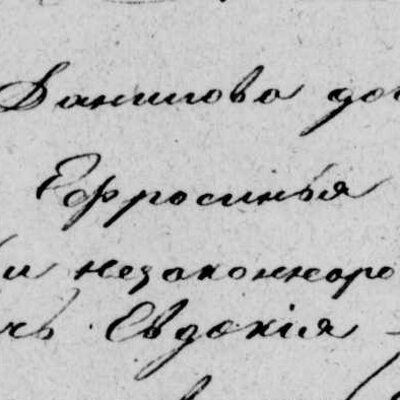 Данилова до
Ефросинья
и незаконноро
чь Евдокія